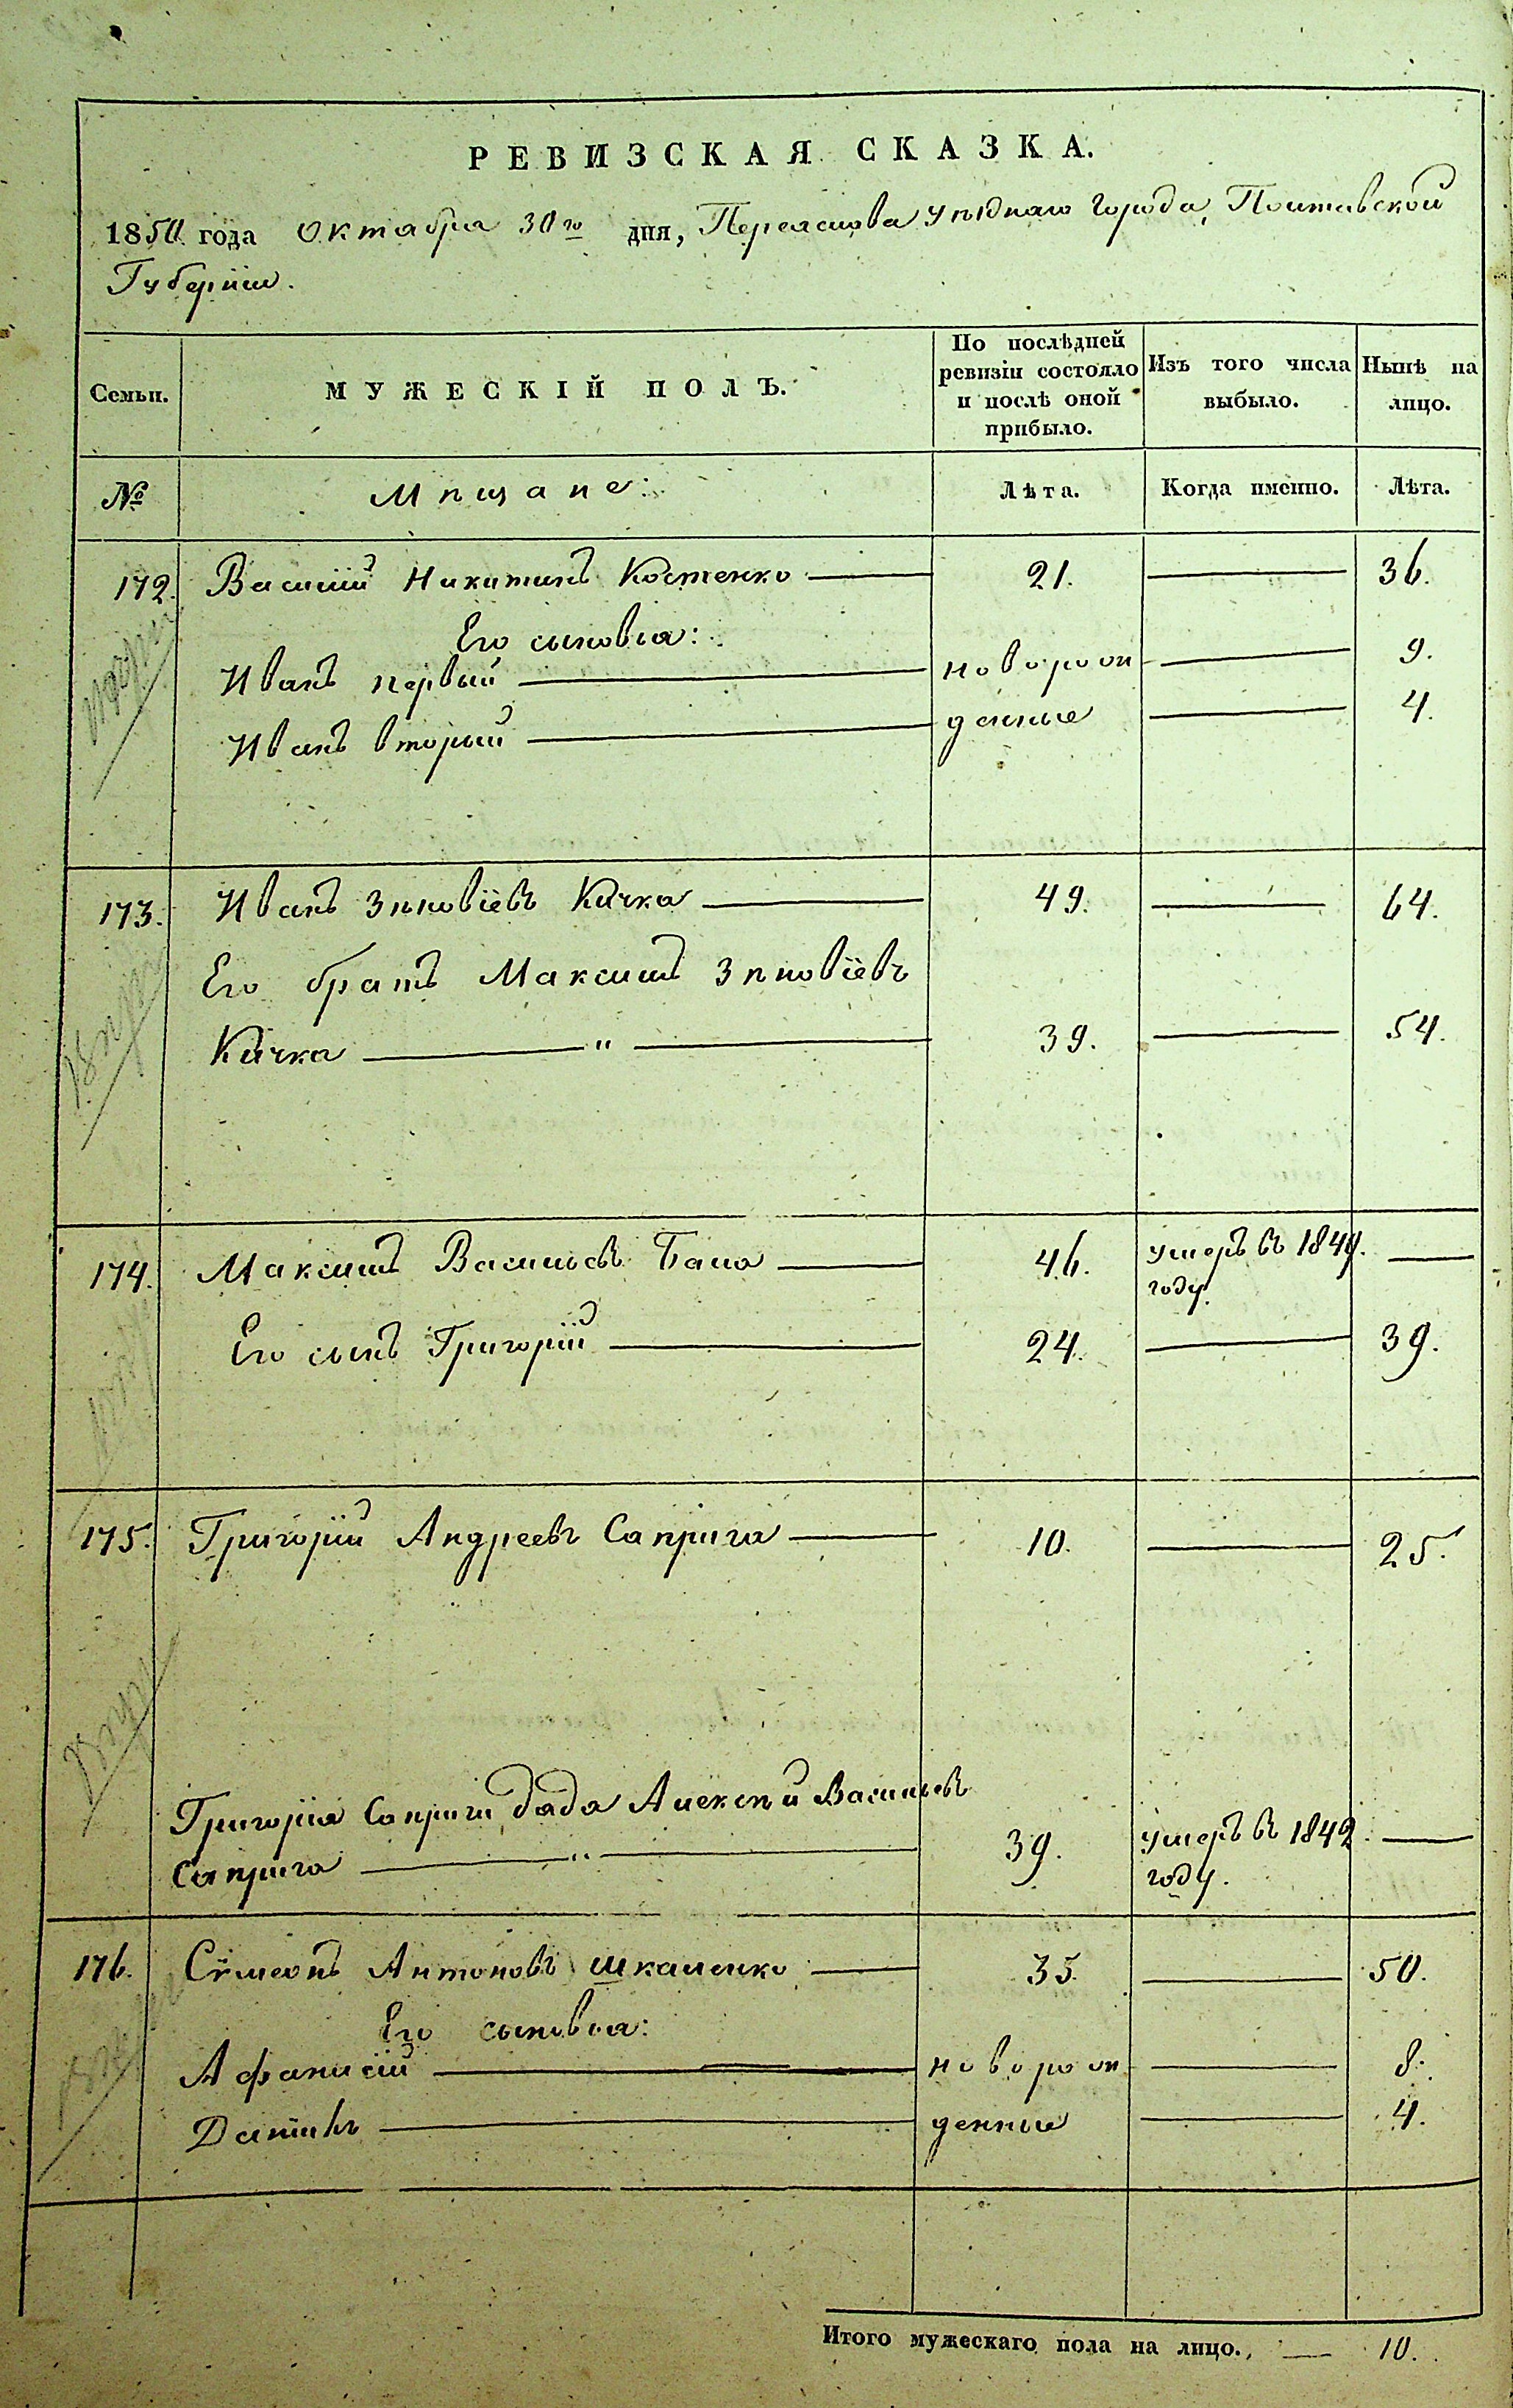 РЕВИЗСКАЯ СКАЗКА.
1850 года Октября 30го дня, Переяслова уѣзднаго города, Полтавской
Губерніи.
Семьи.
МУЖЕСКІЙ ПОЛЪ.
По послѣдней ревизіи состояло и послѣ оной прибыло.
Изъ того числа выбыло.
Нынѣ на лицо.
№ Мѣщане: Лѣта. Когда именно. Лѣта.
172. Василий Никитинъ Костенко — 21. — 36.
Его сыновья:
Иванъ первый — новорож — 9.
Иванъ вторый — денные — 4.
173. Иванъ Зѣновіевъ Качка — 49. — 64.
Его братъ Максимъ Зѣновіевъ
Качка — " — 39. — 54.
174. Максимъ Васильевъ — 46. умеръ въ 1844. —
году.
Его сынъ Григорій — 24. — 39.
175. Григорій Андреевъ Саприга — 10. — 25.
Григорія Саприги дядя Алексѣй Васильевъ
Саприга — " — 39. умеръ въ 1842. —
году.
176. Сѵмеонъ Антоновъ Шкаленко — 35. — 50.
Его сыновья:
Афанасій — новорож — 8.
— денные — 4.
Итого мужескаго пола на лицо. — 10.